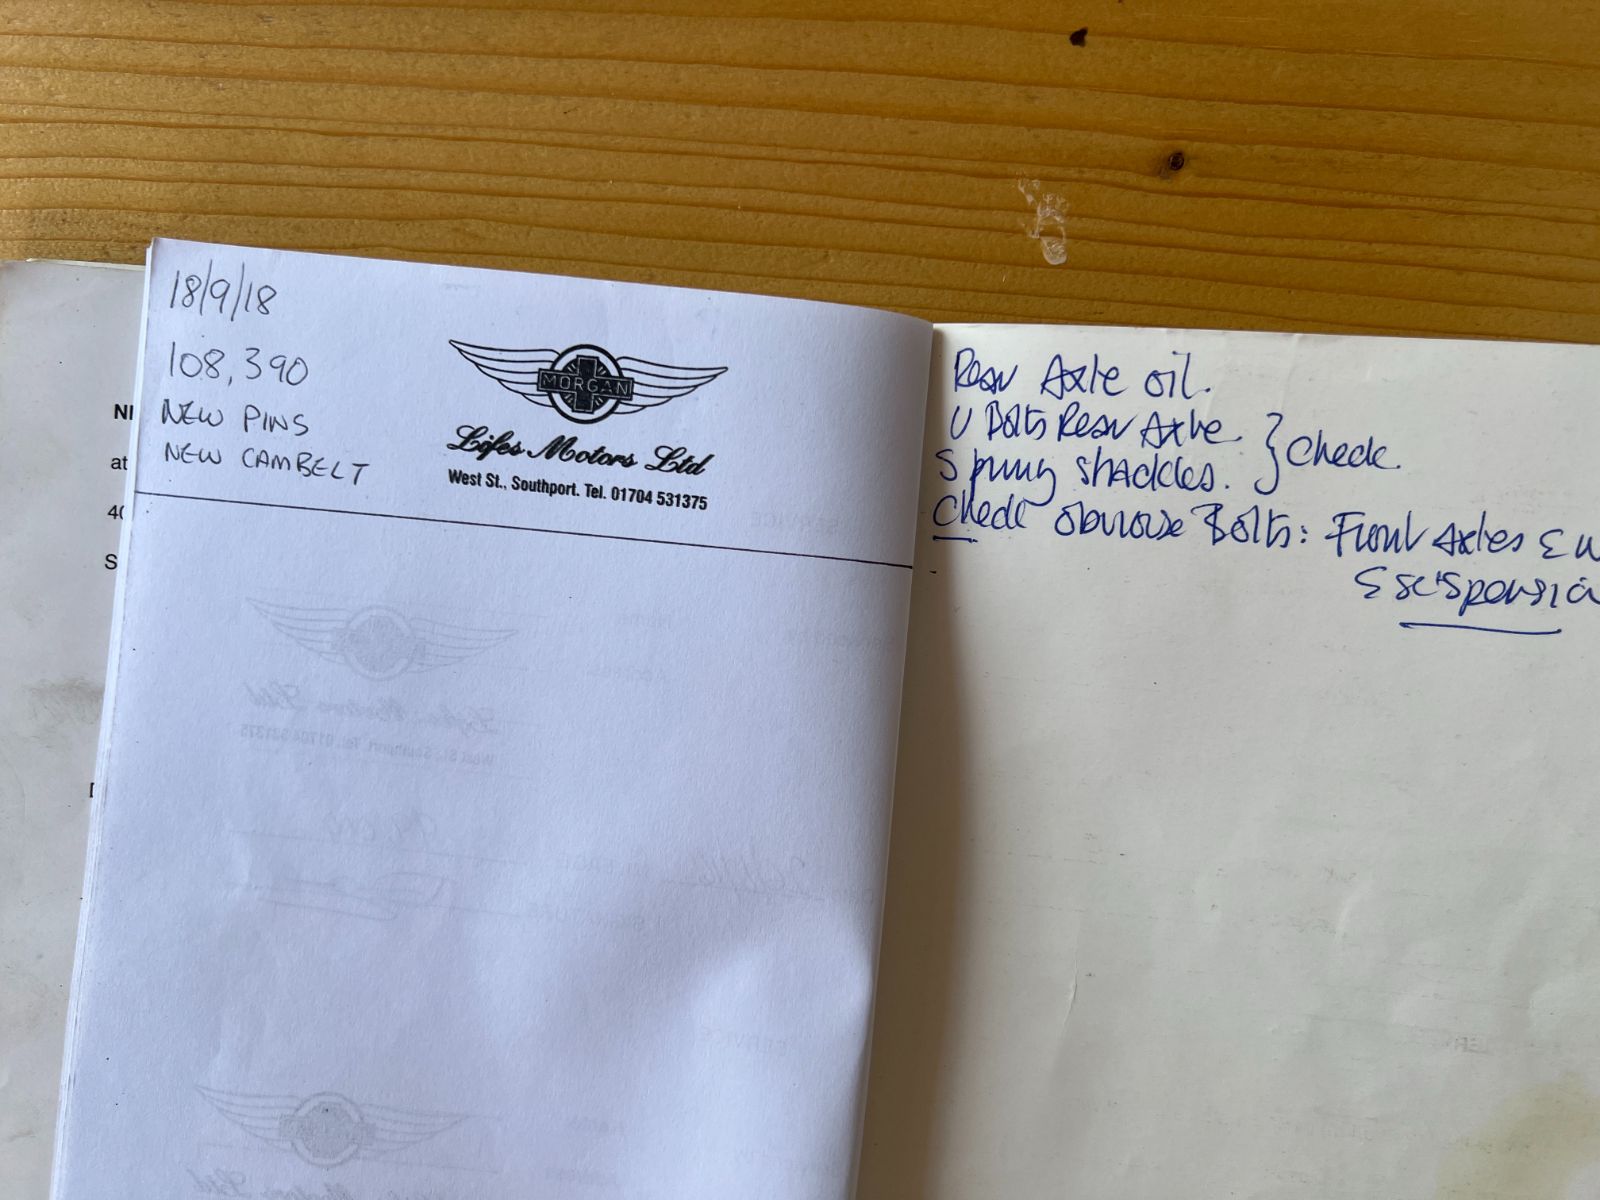 18/9/18
108,390
NEW PINS
NEW CAMBELT
MORGAN
Lifes Motors Ltd
West St., Southport. Tel. 01704 531375
Rear Axle oil.
U Bolts Rear Axle
Spring shackles. } Check.
Check obviouse Bolts: Front Axles &
& suspensio